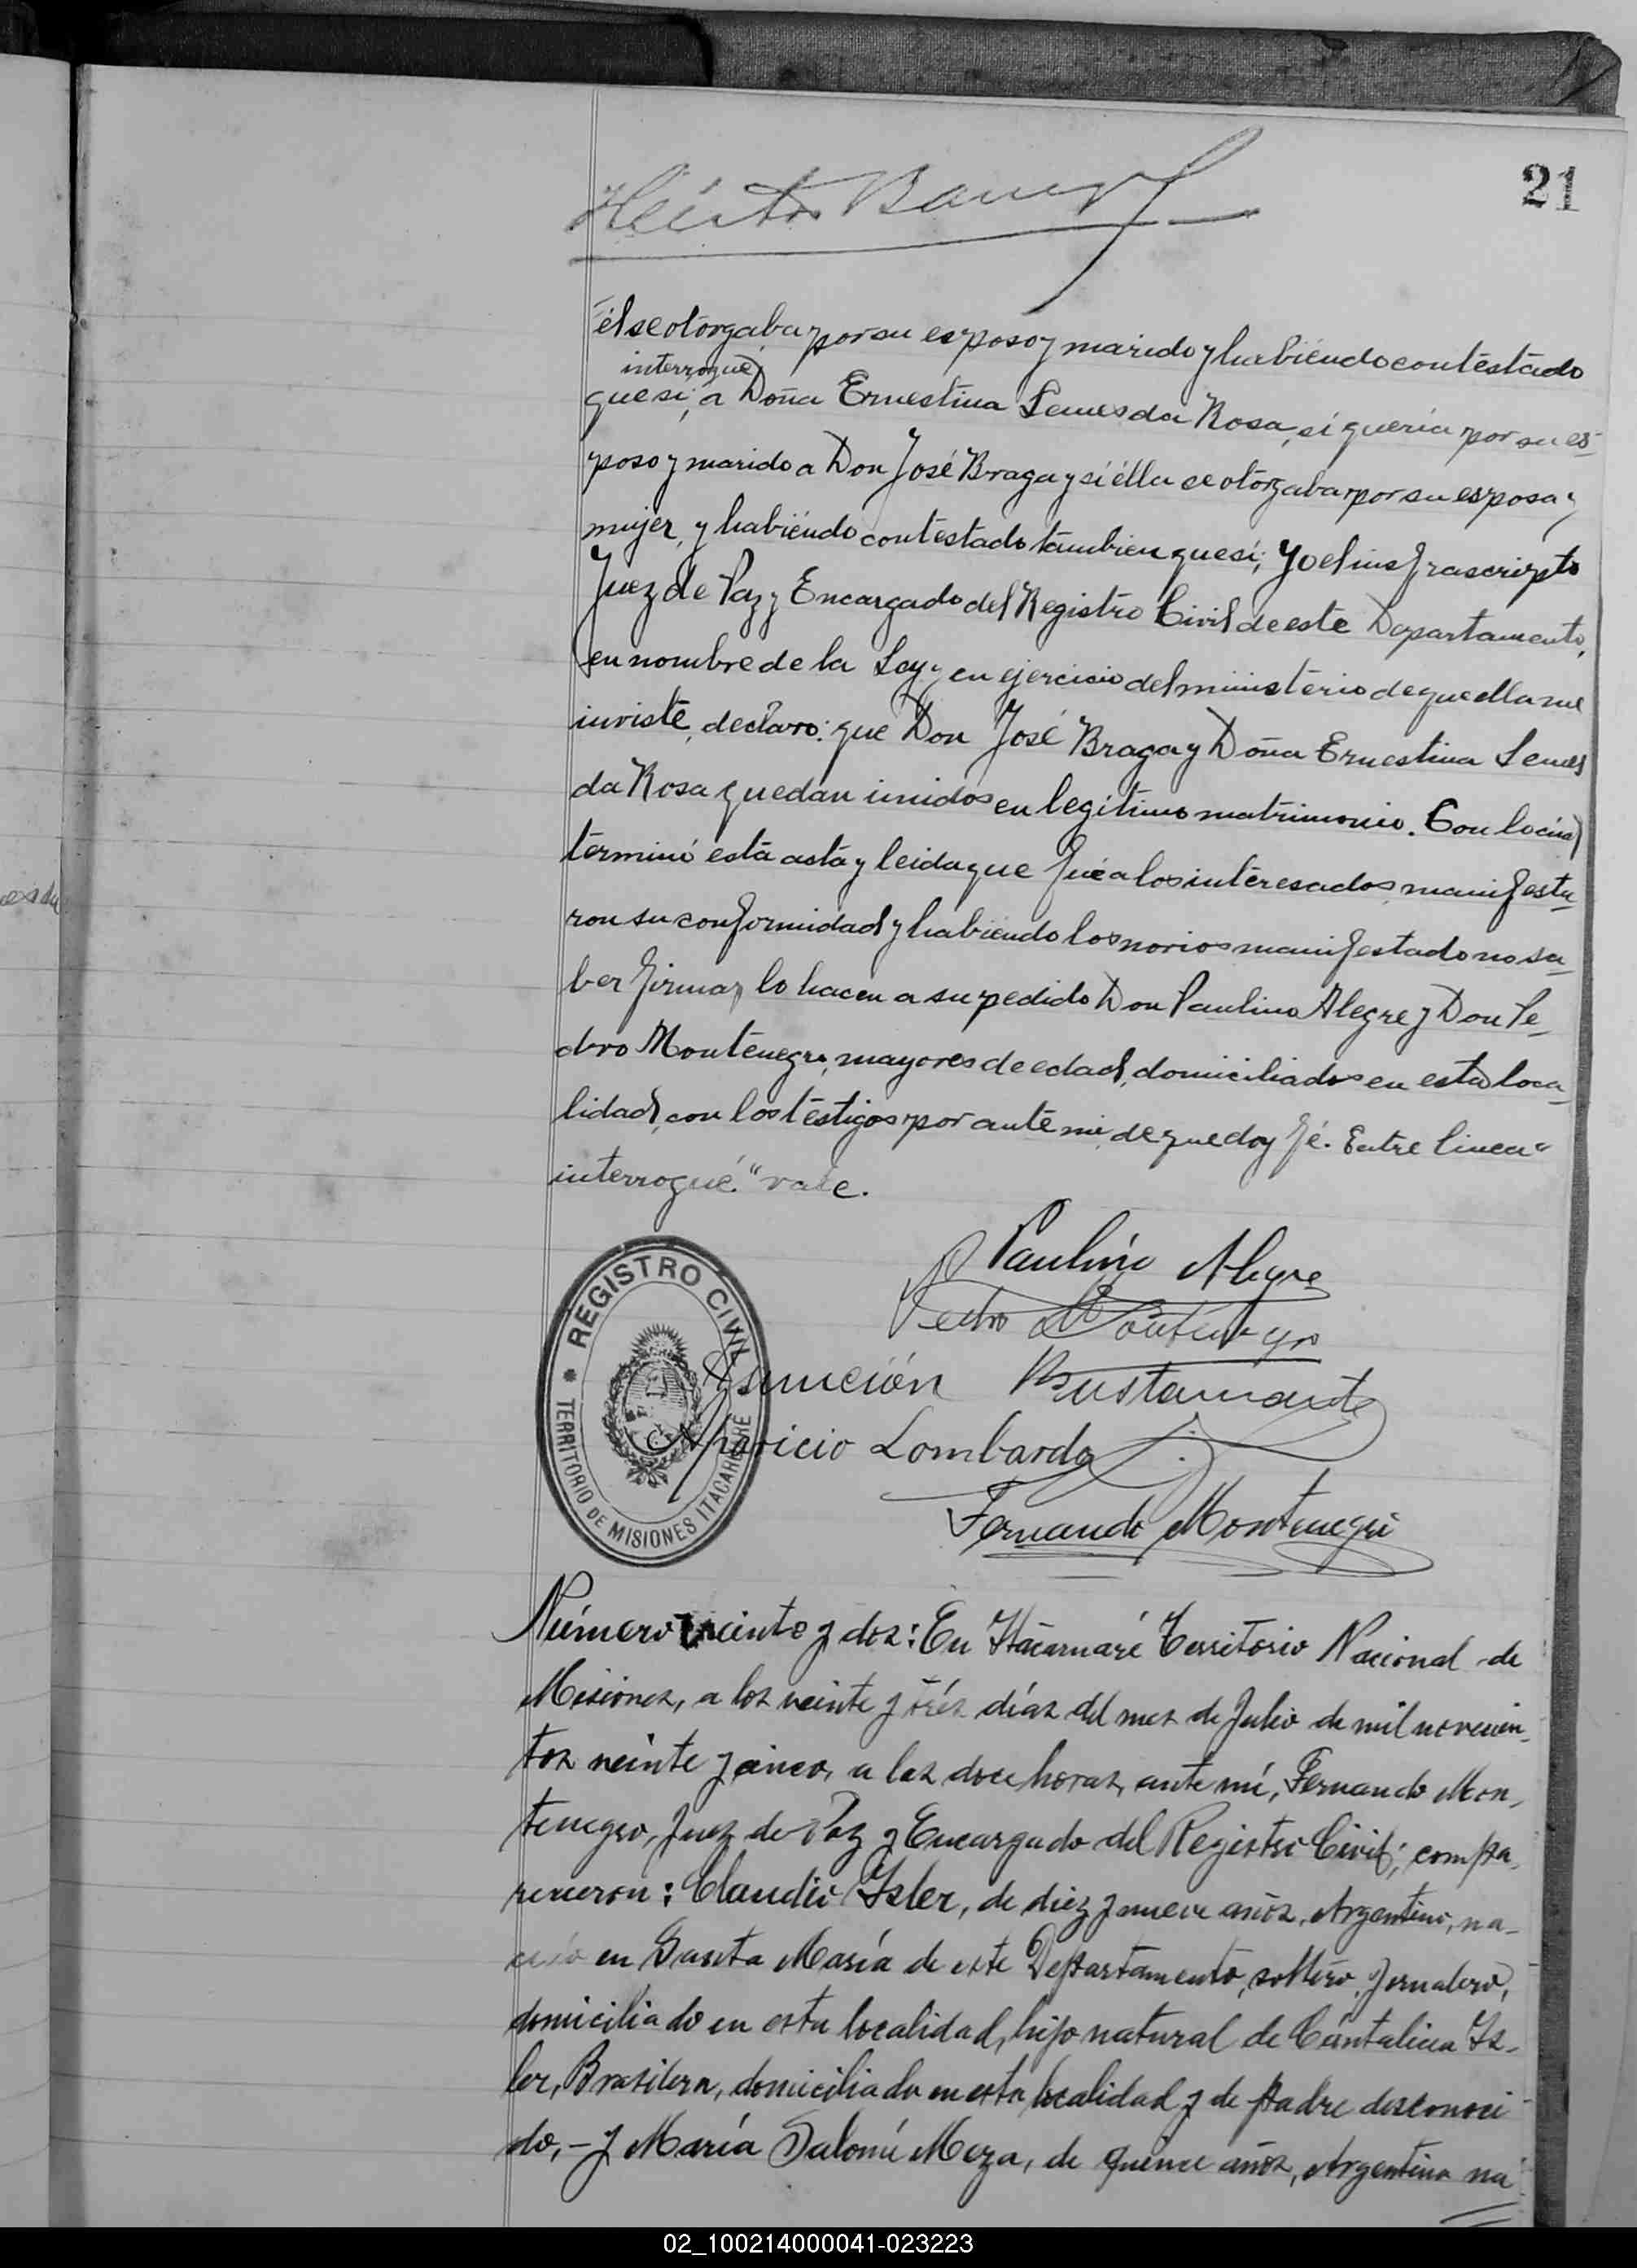 21
Héctor
él se otorgaba por su esposo y marido y habiendo contestado
interrogué
que sí, a Doña Ernestina Lemes da Rosa, si quería por su es-
poso y marido a Don José Braga y si élla se otorgaba por su esposa y
mujer, y habiéndo contestado tambien que sí; Yo el insfrascripto
Juez de Paz y Encargado del Registro Civil de este Departamento,
en nombre de la Ley y en ejercicio del ministerio de que ella me
inviste, declaro: que Don José Braga y Doña Ernestina Lemes
da Rosa quedan unidos en legítimo matrimonio. Con lo cual
terminó esta acta y leida que fué a los interesados, manifesta-
ron su conformidad y habiendo los novios manifestado no sa-
ber firmar, lo hacen a su pedido Don Paulino Alegre y Don Pe-
dro Montenegro, mayores de edad, domiciliados en esta loca-
lidad, con los testigos por ante mi, de que doy fé. Entre linea "
interrogué." vale.
Paulino Alegre
Pedro Montenegro
REGISTRO CIVIL
TERRITORIO DE MISIONES ITACARUARÉ
Asunción Bustamante
Aparicio Lombardo
Fernando Montenegro
Número veinte y dos: En Itacaruaré Territorio Nacional de
Misiones, a los veinte y trés días del mes de Julio de mil novecien-
tos veinte y cinco, a las doce horas, ante mí, Fernando Mon-
tenegro, Juez de Paz y Encargado del Registro Civil; compa-
recieron: Claudio Isler, de diez y nueve años, Argentino, na-
cido en Santa María de este Departamento, soltero, Jornalero,
domiciliado en esta localidad, hijo natural de Cantalicia Is-
ler, Brasilera, domiciliada en esta localidad y de padre desconoci-
do, - y María Salomé Meza, de quince años, Argentina na-
02_100214000041-023223